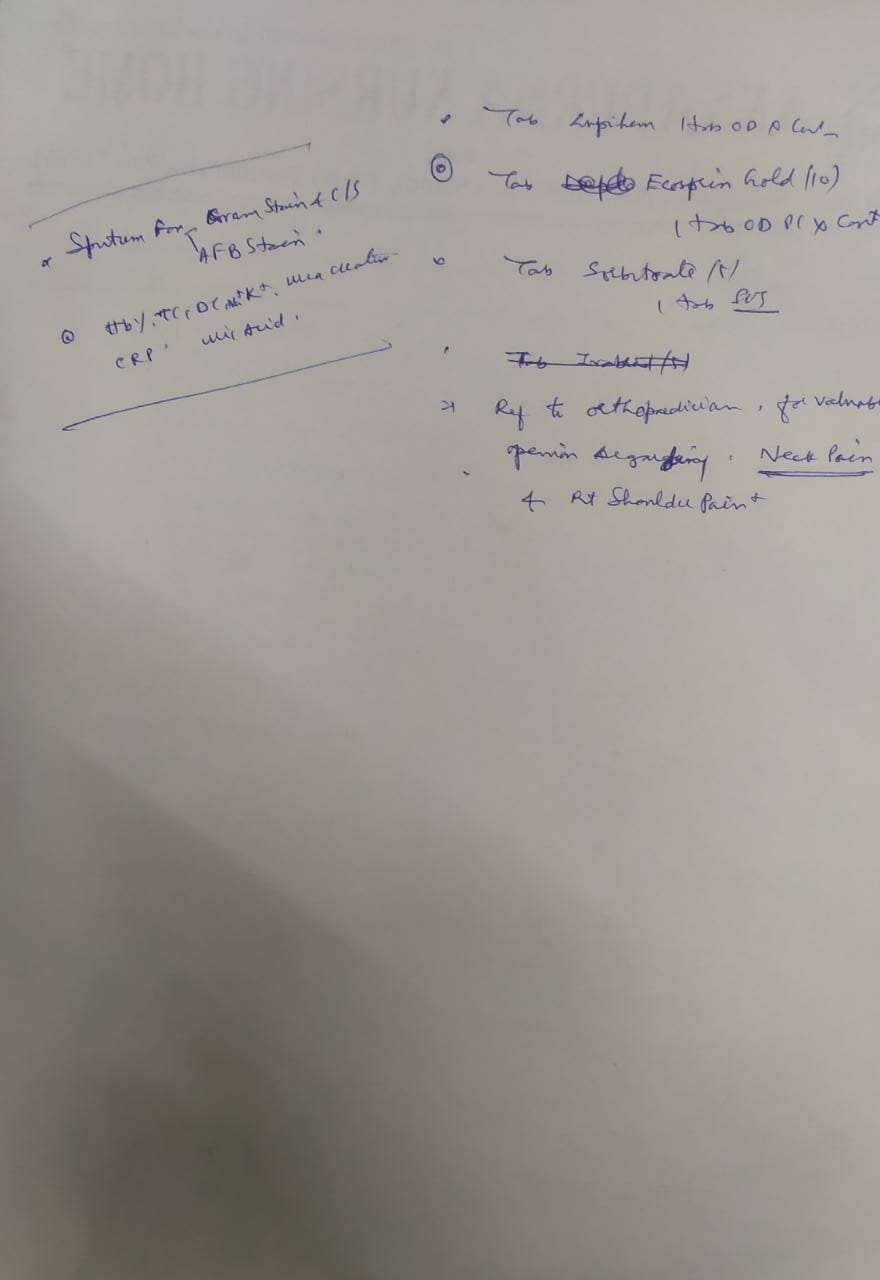 * Sputum For Gram Stain & C/S
AFB Stain.
Hb%, TC, DC, Na+K+, Urea Creatin
CRP. Uric Acid.
Tab 1 tab OD
Tab Ecosprin Gold (10)
1 tab OD PC x Cont
Tab Sorbitrate (5)
1 tab SOS
Ref to orthopaedician, for valuab
openion regarding. Neck Pain
& Rt Shoulder Pain+
NURSING HOME